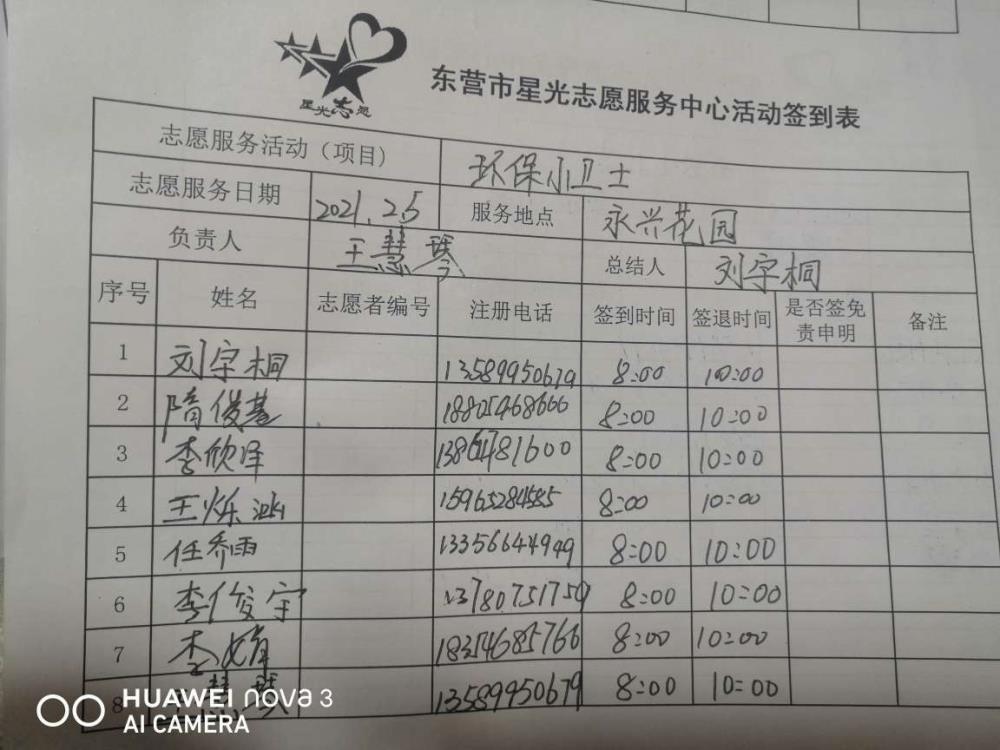 星光志愿
东营市星光志愿服务中心活动签到表
志愿服务活动（项目） 环保小卫士
志愿服务日期 2021.2.5 服务地点 永兴花园
负责人 王慧琴 总结人 刘宇桐
序号 姓名 志愿者编号 注册电话 签到时间 签退时间 是否签免责申明 备注
1 刘宇桐 13589950679 8:00 10:00
2 隋俊基 18805468666 8:00 10:00
3 李欣泽 13864781600 8:00 10:00
4 王烁涵 15965284585 8:00 10:00
5 任乔雨 13356644949 8:00 10:00
6 李俊宇 13780751759 8:00 10:00
7 李婧 18354685766 8:00 10:00
8 慧琴 13589950679 8:00 10:00
HUAWEI nova 3
AI CAMERA